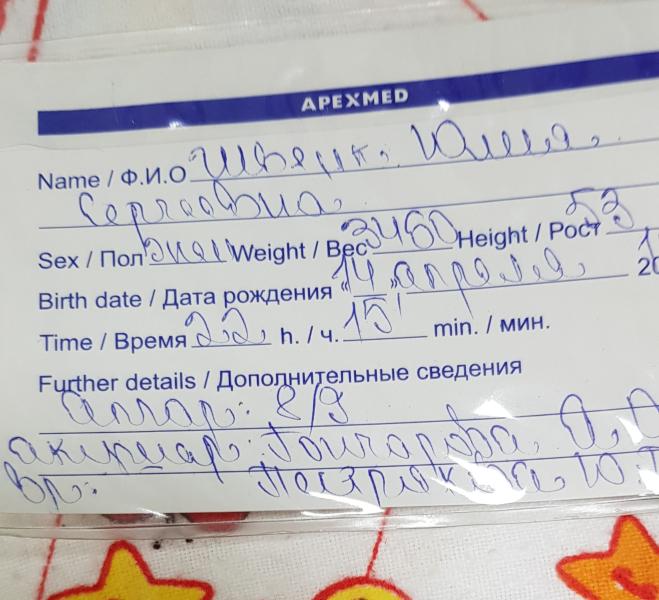 APEXMED
Name / Ф.И.О Юлия
Сергеевна
Sex / Пол жен Weight / Вес 3460 Height / Рост 53
Birth date / Дата рождения "14" апреля 20
Time / Время 22 h. / ч. 15 min. / мин.
Further details / Дополнительные сведения
Апгар: 8/9
акушер: Гончарова
Вр: